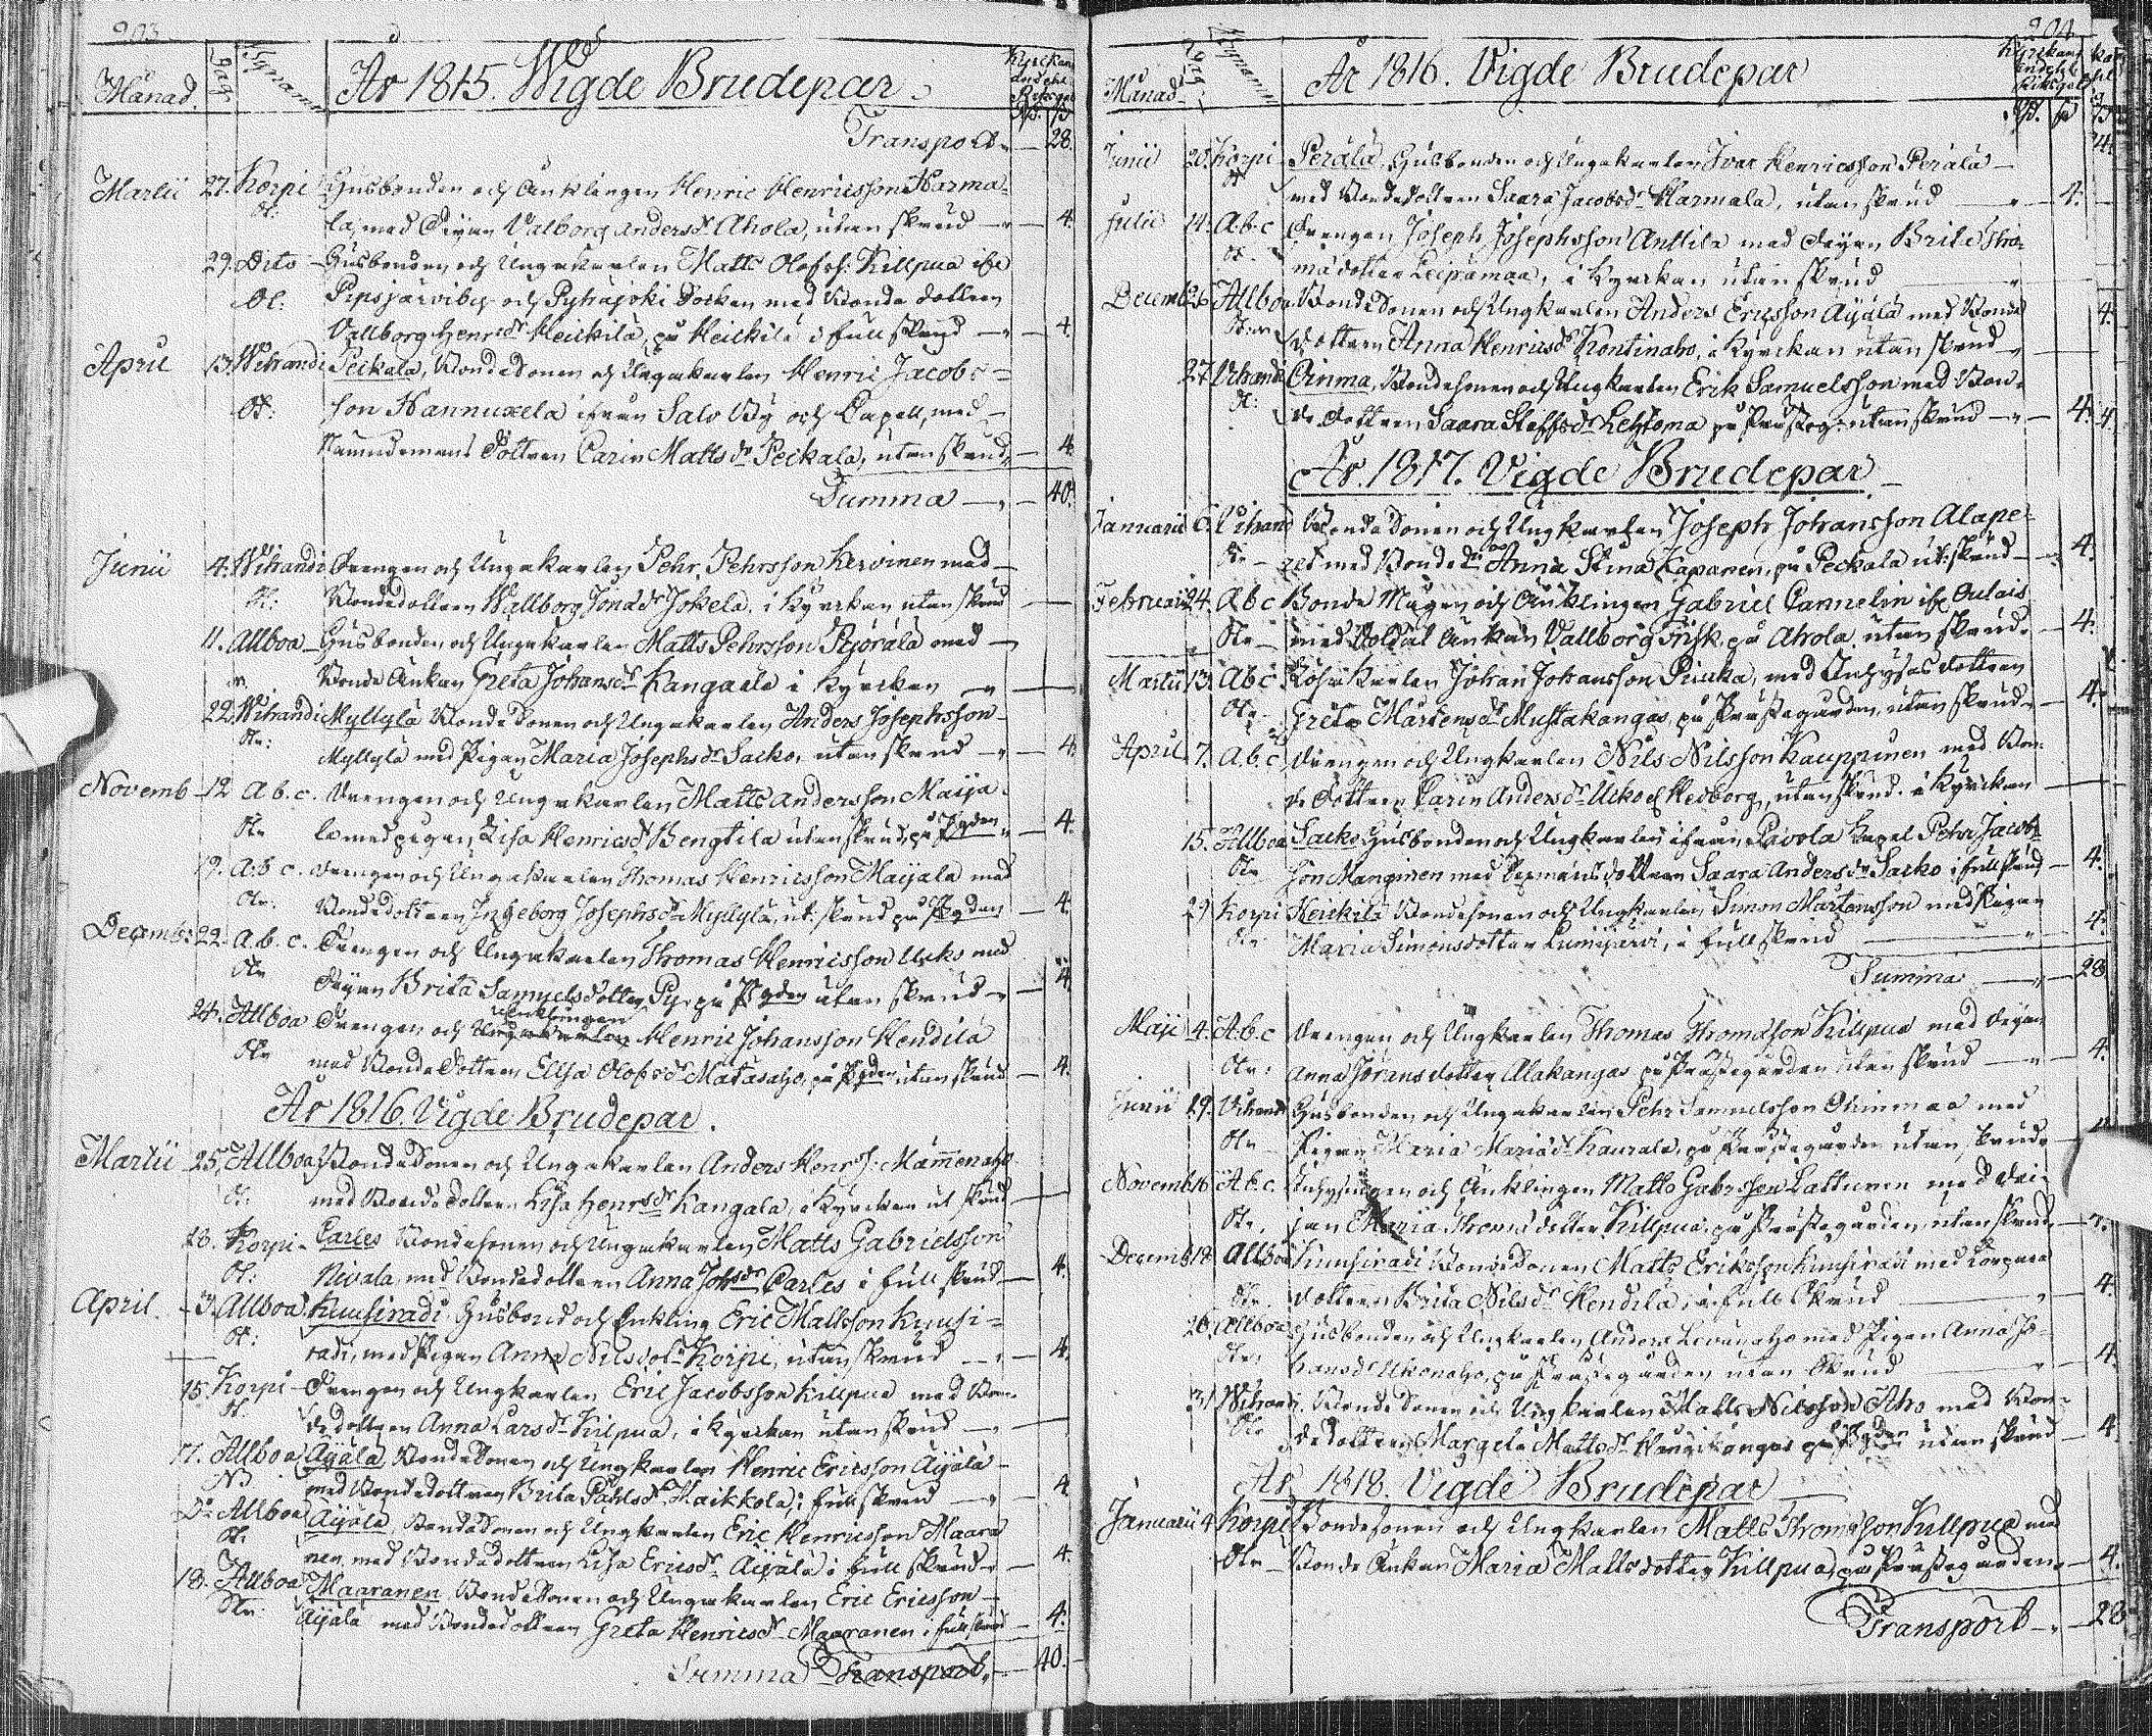 203
Månad. Dag Bynamn År 1815. Wigde Brudepar. Kyrckans
Transport — 28.
Martii 27. Korpi Husbonden och Änklingen Henric Henricsson Harma-
la, med Pigan Valborg Andersdr Ahola, utan skrud — 4.
29. Dito Husbonden och Ungakarlen Matts Olofss: Killpua
Pipsjärviby och Pyhäjoki Socken med Bonde dottren
Vallborg Henrsdr Heickilä, på Heickilä i full skrud — 4.
April 13. Wihandi Peckala, Bondesonen och Ungakarlen Henric Jacobs-
son Hannuxela ifrån Salo By och Capell, med
Nämndemans Dottren Carin Matts dr Peckala, utan skrud — 4.
Summa — 40.
Junii 4. Wihandi Drengen och Ungakarlen Pehr Pehrsson Kervinen med
Bondedottren Wallborg Jona dr Jokela, i Kyrckan utan skrud —
11. Allboa Husbonden och Ungakarlen Matts Pehrsson Pyörälä med
Bonde Änkan Greta Johansdr Kangaela i Kyrckan —
22. Wihandi Myllylä Bondesonen och Ungakarlen Anders Josephsson
Myllylä med Pigan Maria Josephsdr Sacko, utan skrud — 4.
Novemb 12 A. b. c. Drengen och Ungakarlen Matts Andersson Maija-
la med pigan Lisa Henricsdr Bengtila utan skrud, på Pgden — 4.
19. A. b. c. Drengen och Ungakarlen Thomas Henricsson Maijala med
Bondedottren Ingeborg Josephsdr Myllylä, ut. skrud på Pgden — 4.
Decemb: 22. A. b. c. Drengen och Ungakarlen Thomas Henricsson Ucko med
Pigan Brita Samuelsdotter Py, på Pgden utan skrud — 4.
Änklingen
24. Allboa Drengen och Ungakarlen Henric Johansson Hendilä
med Bonde Dottren Elisa Olofsdr Matasaho, på Pgden utan skrud — 4.
År 1816. Vigde Brudepar.
Martii 25. Allboa Bondesonen och Ungakarlen Anders Henrss: Mämenaho
med Bonde dottren Lisa Henrsdr Kangala, i Kyrckan ut skrud —
28. Korpi Carles Bondesonen och Ungakarlen Matts Gabrielsson
Nivala, med Bondedottren Anna Johsdr Carles i full skrud — 4.
April 3. Allboa Kuusiradi Husbond och Enkling Eric Mattsson Kuusi-
radi, med Pigan Anna Nilsdotr Korpi, utan skrud — 4.
15. Korpi Drengen och Ungkarlen Eric Jacobsson Killpua med Bon-
dedottren Anna Larsdr Kilpua, i Kyrckan utan skrud —
17. Allboa Äijälä, Bondesonen och Ungkarlen Henric Ericsson Äijälä
med Bondedottren Brita Påhlsdr Haikkola i full skrud — 4
Do Allboa Äijälä, Bondesonen och Ungkarlen Eric Henricsson Maara
nen, med Bondedottren Lisa Ericsdr Äijälä i full skrud — 4.
18. Allboa Maaranen Bondesonen och Ungakarlen Eric Ericsson
Äijälä med Bondedottren Greta Henricsdr Maaranen i full skrud — 4.
Summa Transport — 40.
204
Månad Dag Bynamn År 1816. Vigde Brudepar Kyrckans
Junii 20. Korpi Perälä, Husbonden och Ungakarlen Ivar Henricsson Perälä
med Bondedottren Saara Jacobsdr Harmala, utan skrud — 4.
Julii 14. A. b. c Drengen Joseph Josephsson Anttila med Pigan Brita Tho-
mädotter Leiprämaa, i Kyrckan utan skrud —
Decemb 26 Allboa Bondesonen och Ungkarlen Anders Ericsson Äijälä med Bonde
dottren Anna Henricsdr Kontinaho, i Kyrckan utan skrud — 4.
27. Vihandi Oinma, Bondesonen och Ungkarlen Erik Samuelsson med Bon-
de dottren Saara Steffsdr Lehtoma på Prästeg: utan skrud — 4. 4.
År. 1817. Vigde Brudepar
Januarii 6. Vihand Bondesonen och Ungkarlen Joseph Johansson Alape-
ret med Bonde dr Anna Stina Kaparen, på Peckala ut. skrud — 4.
Februarii 24. A b c Bonde Mågen och Änklingen Gabriel Cannelin Oulais
med Änkan Vallborg Frisk, på Ahola utan skrud — 4.
Martii 13. A b c Johan Johansson Piucka, med Inhyses dottren
Greta Mårtensdr Mustakangas, på Prästegården, utan skrud — 4.
April 7. A. b. c. Drengen och Ungkarlen Nils Nilsson Kauppinen med Bon-
de dottren Carin Andersdr Ucko Hedborg, utan skrud. i Kyrckan —
15. Allboa Sacko Husbonden och Ungkarlen ifrån Pavola Capel Pehr Jacobs-
son Manginen med dottren Saara Andersdr Sacko i full skrud — 4.
29 Korpi Heickilä Bondesonen och Ungkarlen Simon Mårtensson med Pigan
Maria Simonsdotter Lumijärvi, i full skrud — 4.
Summa — 28
Maji 4. A. b. c Drengen och Ungkarlen Thomas Thomasson Killpua med Pigan
Anna Jöransdotter Alakangas på Prästegården utan skrud — 4.
Junii 29. Vihandi Husbonden och Ungakarlen Pehr Samuelsson Ohinmaa med
Pigan Maria Mariädr Kaurala, på Prästegården utan skrud —
Novemb 16 A. b. c. Inhysingen och Änklingen Matts Gabrsson Lattunen med Pi-
gan Maria Thomädotter Killpua på Prästegården, utan skrud —
Decemb 12 Allboa Kuusiradi Bondesonen Matts Eriksson Kuusiradi med
dottren Brita Nilsdr Hendila, i full skrud — 4.
26. Allboa Husbonden och Ungkarlen Anders Levänaho med Pigan Anna Jo-
hansdr Ukonaho, på Prästegården utan skrud — 4.
31 Wihandi. Bonde sonen och Ungkarlen Matts Nilsson Aho med Bon-
dedottren Margeta Mattsdr Haugikangas på Pgden utan skrud — 4.
År 1818. Vigde Brudepar
Januarii 4 Korpi Bondesonen och Ungkarlen Matts Thomasson Killpua med
Bonde Änkan Maria Mattsdotter Killpua, på Prästegården — 4.
Transport — 28